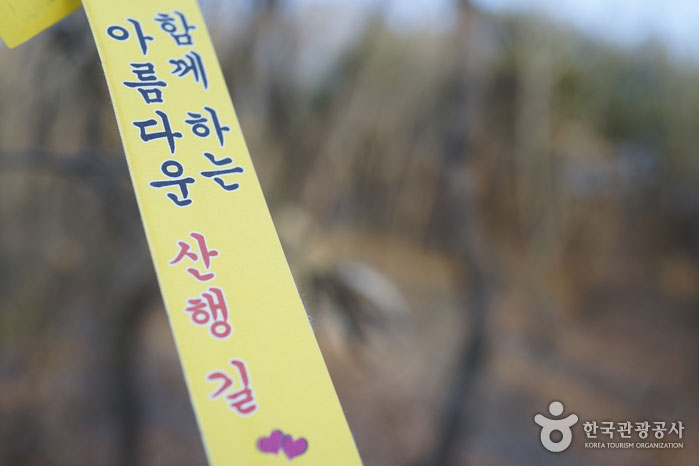 함께하는
아름다운
산행길
한국관광공사
KOREA TOURISM ORGANIZATION